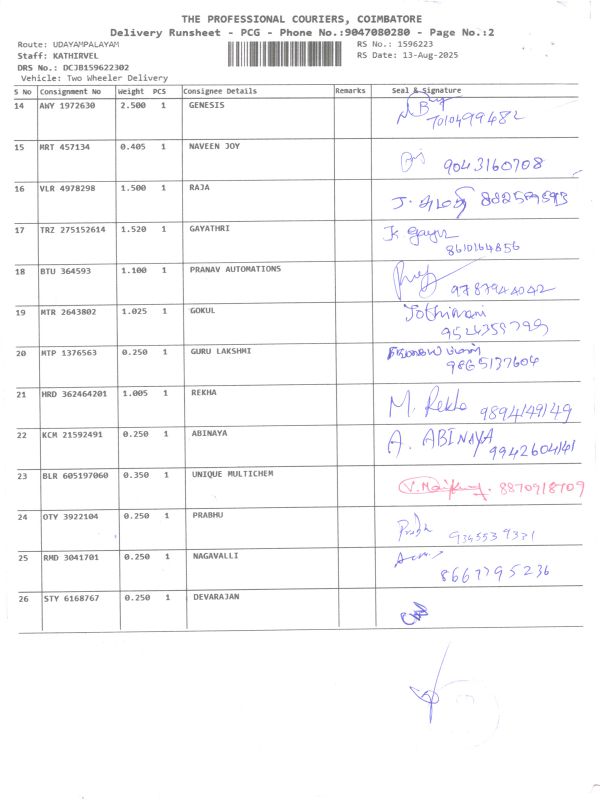 THE PROFESSIONAL COURIERS, COIMBATORE
Delivery Runsheet - PCG - Phone No.:9047080280 - Page No.:2
Route: UDAYAMPALAYAM RS No.: 1596223
Staff: KATHIRVEL RS Date: 13-Aug-2025
DRS No.: DCJB159622302
Vehicle: Two Wheeler Delivery
S No Consignment No Weight PCS Consignee Details Remarks Seal & Signature
14 AWY 1972630 2.500 1 GENESIS
7010499482
15 MRT 457134 0.405 1 NAVEEN JOY
9043160708
16 VLR 4978298 1.500 1 RAJA
17 TRZ 275152614 1.520 1 GAYATHRI
8610164856
18 BTU 364593 1.100 1 PRANAV AUTOMATIONS
9787944042
19 MTR 2643802 1.025 1 GOKUL Jothimani
9524359799
20 MTP 1376563 0.250 1 GURU LAKSHMI
9865137604
21 HRD 362464201 1.005 1 REKHA M. Rekha 9894149149
22 KCM 21592491 0.250 1 ABINAYA A. ABINAYA
9942604141
23 BLR 605197060 0.350 1 UNIQUE MULTICHEM 8870918709
24 OTY 3922104 0.250 1 PRABHU Prabh 9345539331
25 RMD 3041701 0.250 1 NAGAVALLI
8667795236
26 STY 6168767 0.250 1 DEVARAJAN